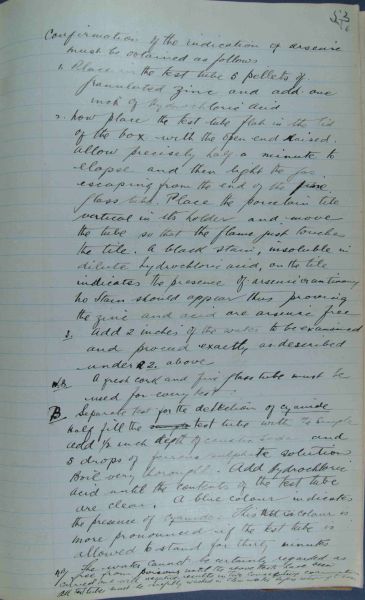 Confirmation of the indication of arsenic
must be obtained as follows
1. Place in the test tube 6 pellets of
granulated zinc and add one
inch of hydrochloric acid
2. Now place the test tube flat in the lid
of the box with the open end raised.
allow precisely half a minute to
elapse and then light the gas
escaping from the end of the fine
glass tube. Place the porcelain tile
vertical in its holder and move
the tube so that the flame just touches
the tile. A black stain, insoluble in
dilute hydrochloric acid, on the tile
indicates the presence of arsenic or antimony
No stain should appear thus proving
the zinc and acid are arsenic free
3. add 2 inches of the water to be examined
and proceed exactly as described
under 2 above
N.B. A fresh cork and fine glass tube must be
used for every test
B. Separate test for the detection of cyanide
Half fill the test tube with the sample
add 1/2 inch depth of caustic soda and
3 drops of ferrous sulphate solution
Boil very thoroughly. Add hydrochloric
acid until the contents of the test tube
are clear. A blue colour indicates
the presence of cyanide. This colour is
more pronounced if the test tube is
allowed to stand for thirty minutes
The water cannot be certainly regarded as
free from poisons until the above tests have been
carried out with negative results